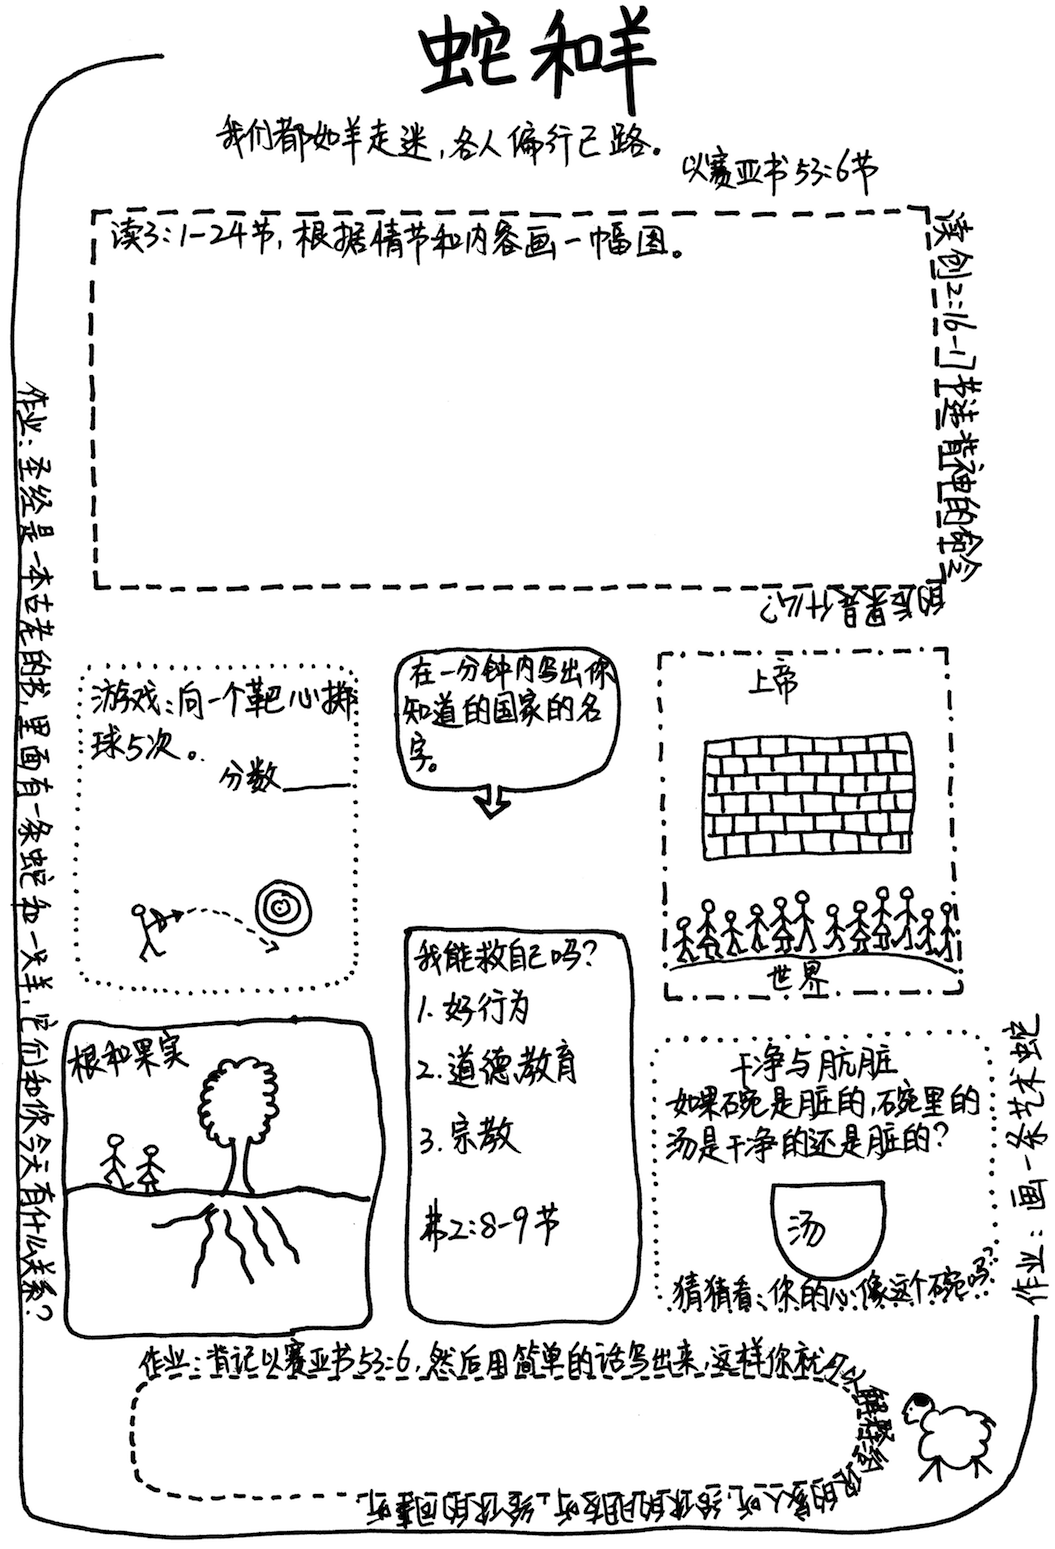 蛇和羊
我们都如羊走迷,各人偏行己路。
以赛亚书53:6节
读3:1-24节,根据情节和内容画一幅图。
读创2:16-17节违背神的命令
的后果是什么?
作业:圣经是一本古老的书,里面有一条蛇和一只羊,它们和你今天有什么关系?
游戏:向一个靶心掷
球5次。
分数
在一分钟内写出你
知道的国家的名
字。
上帝
世界
根和果实
我能救自己吗?
1.好行为
2.道德教育
3.宗教
弗2:8-9节
干净与肮脏
如果碗是脏的,碗里的
汤是干净的还是脏的?
汤
猜猜看:你的心像这个碗吗?
作业:画一条艺术蛇
作业:背记以赛亚书53:6,然后用简单的话写出来,这样你就可以解释给你的家人听,给你的朋友听,给你的同事听